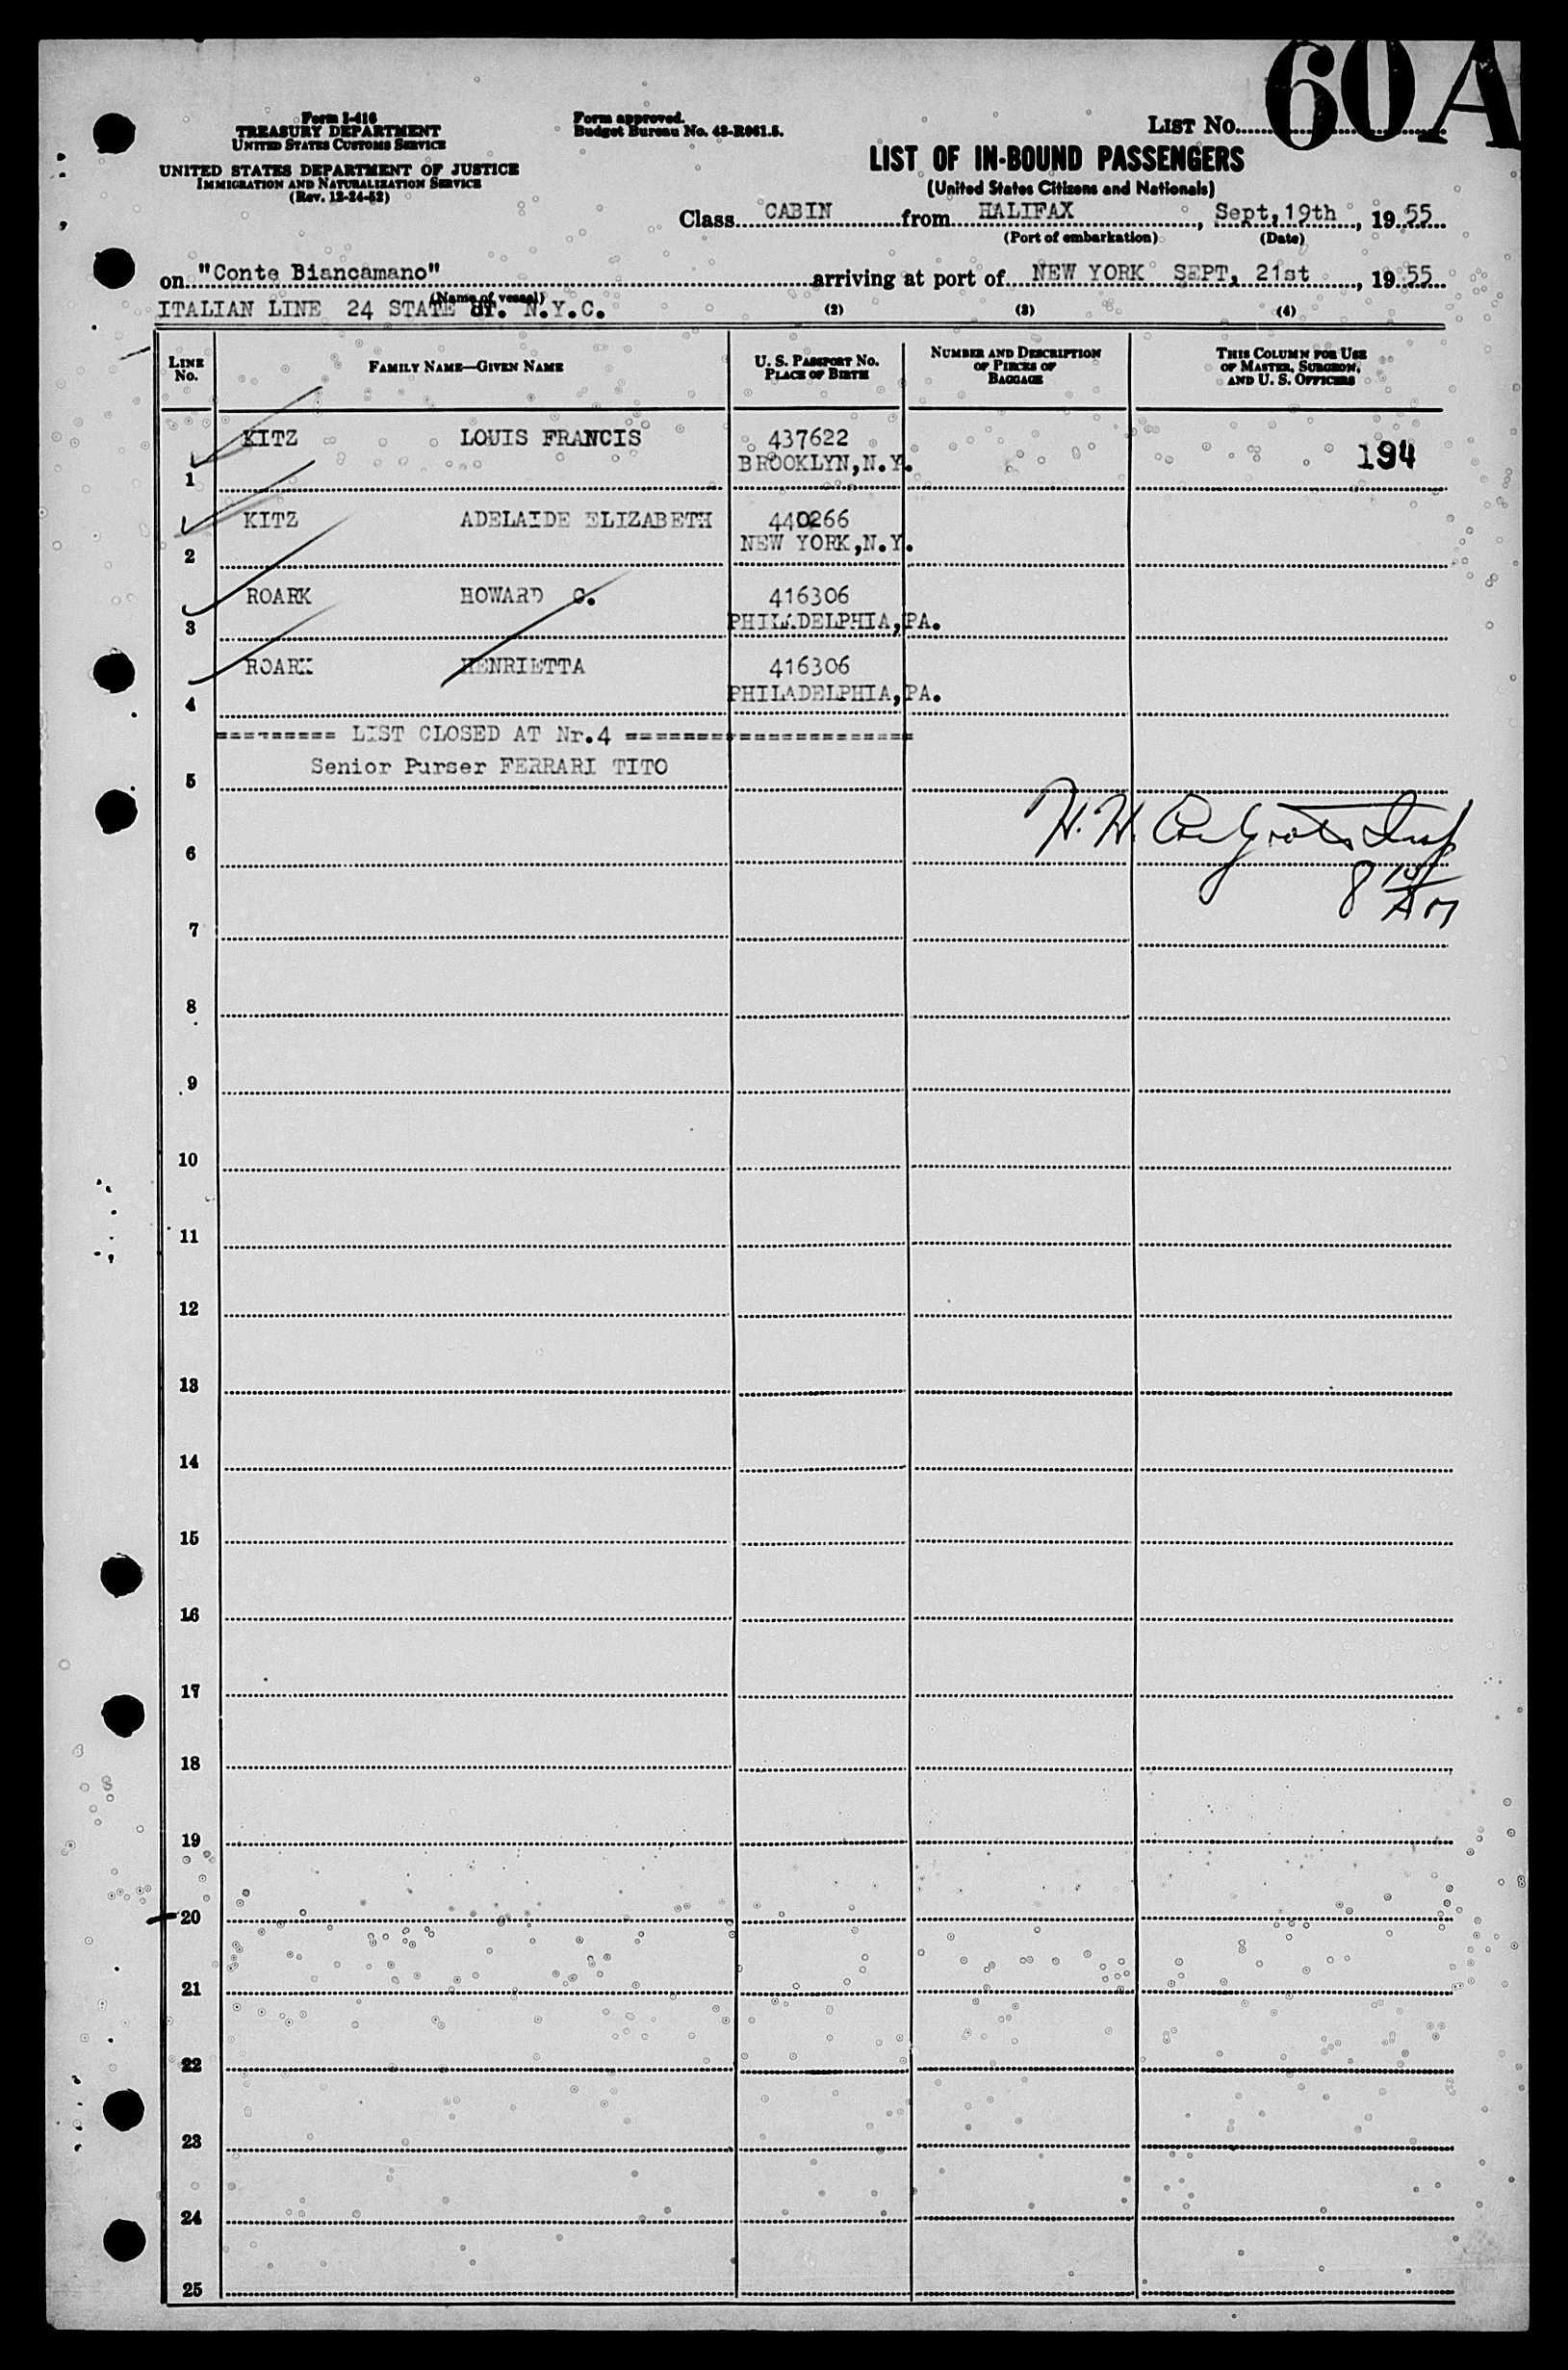 60A
Form I-416
TREASURY DEPARTMENT
UNITED STATES CUSTOMS SERVICE
UNITED STATES DEPARTMENT OF JUSTICE
IMMIGRATION AND NATURALIZATION SERVICE
(Rev. 12-24-52)
Form approved.
Budget Bureau No. 43-R061.5.
LIST No.
LIST OF IN-BOUND PASSENGERS
(United States Citizens and Nationals)
Class CABIN from HALIFAX, Sept, 19th, 19 55
(Port of embarkation) (Date)
on "Conte Biancamano" arriving at port of NEW YORK SEPT, 21st, 19 55
(Name of vessel)
ITALIAN LINE 24 STATE ST. N.Y.C. (2) (3) (4)
LINE No. FAMILY NAME—GIVEN NAME U. S. PASSPORT No. PLACE OF BIRTH NUMBER AND DESCRIPTION OF PIECES OF BAGGAGE THIS COLUMN FOR USE OF MASTER, SURGEON, AND U. S. OFFICERS
1 KITZ LOUIS FRANCIS 437622 194
BROOKLYN,N.Y.
2 KITZ ADELAIDE ELIZABETH 440266
NEW YORK,N.Y.
3 ROARK HOWARD 416306
PHILADELPHIA,PA.
4 ROARK HENRIETTA 416306
PHILADELPHIA,PA.
========= LIST CLOSED AT Nr.4 =====================
5 Senior Purser FERRARI TITO
6 H. H.
7 8 AM
8
9
10
11
12
13
14
15
16
17
18
19
20
21
22
23
24
25